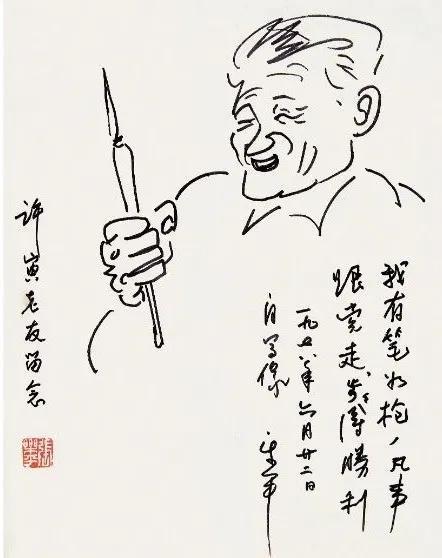 我有笔如枪，凡事
跟党走，步步得勝利
一九七八年六月廿二日
自写像 乐平
许寅老友留念